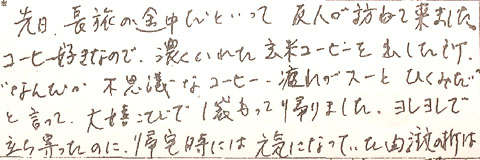 先日、長旅の途中だといって 友人が訪ねて来ました。
コーヒー好きなので、濃くいれた玄米コーヒーを出したが、
"なんだか 不思議なコーヒー、疲れがスーとひくみたい"
と言って、大喜びで 1袋もって帰りました。ヨレヨレで
立ち寄ったのに、帰宅時には元気になっていた由